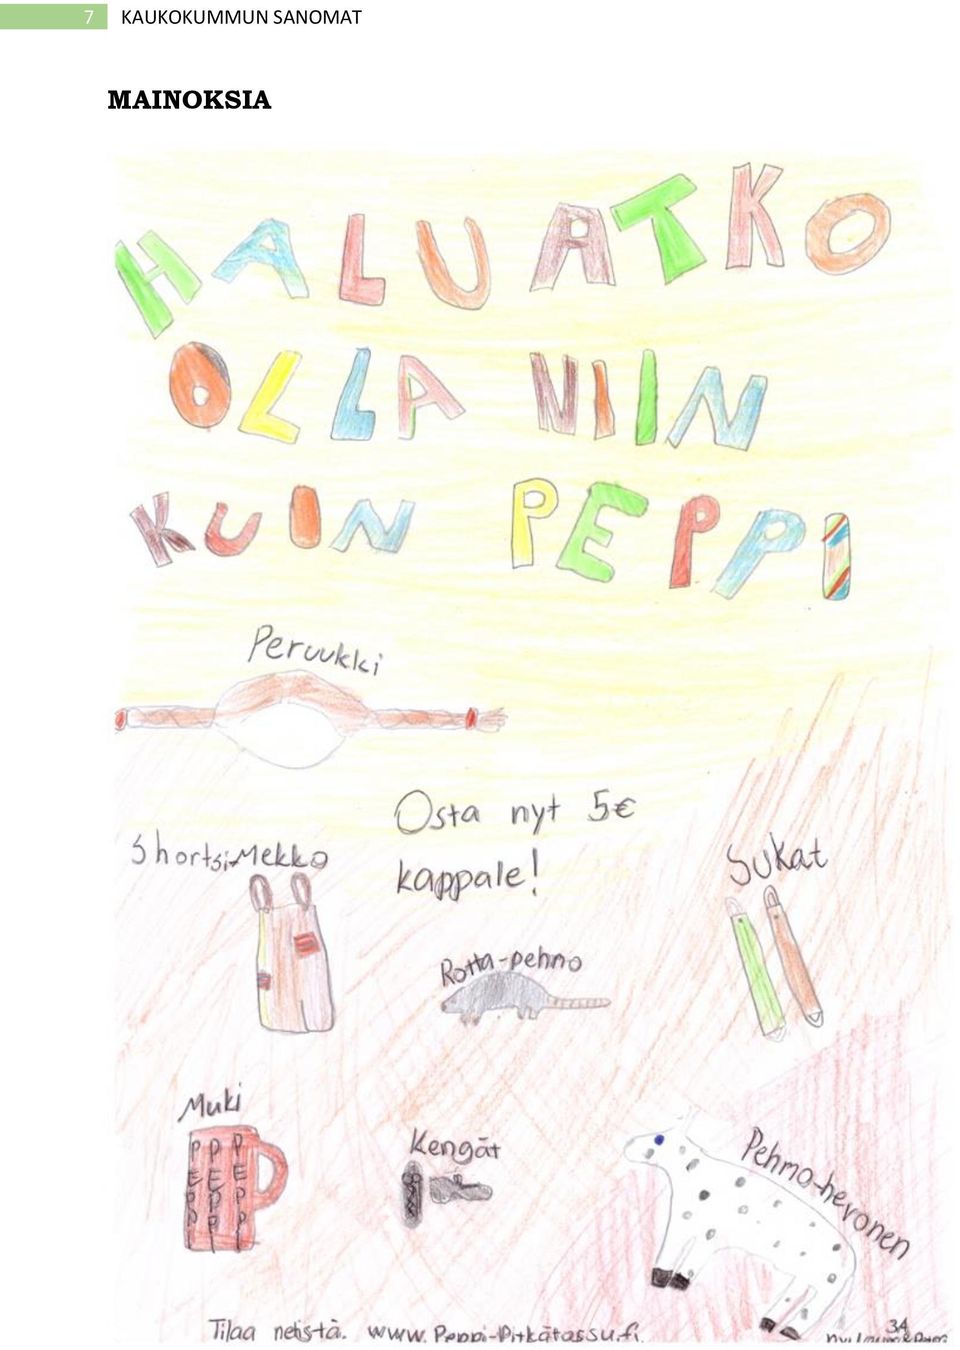 7 KAUKOKUMMUN SANOMAT
MAINOKSIA
HALUATKO
OLLA NIIN
KUIN PEPPI
Peruukki
Osta nyt 5€
kappale!
ShortsiMekko
Sukat
Rotta-pehmo
Muki
PEPPI PEPPI PEPPI
Kengät
Pehmo-hevonen
Tilaa netistä. www.Peppi-Pitkätassu.fi.
3A